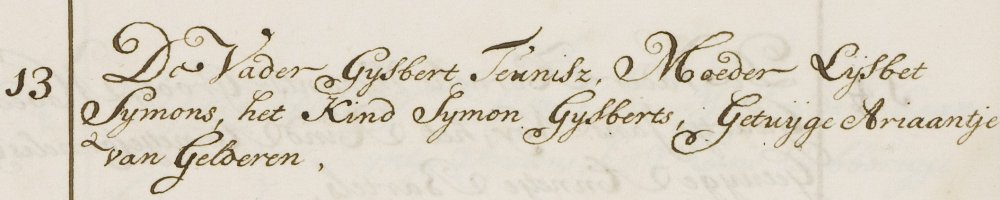 13 De Vader Gysbert Teunisz, Moeder Lijsbet
Symons, het Kind Symon Gysberts, Getuijge Ariaantje
van Gelderen,